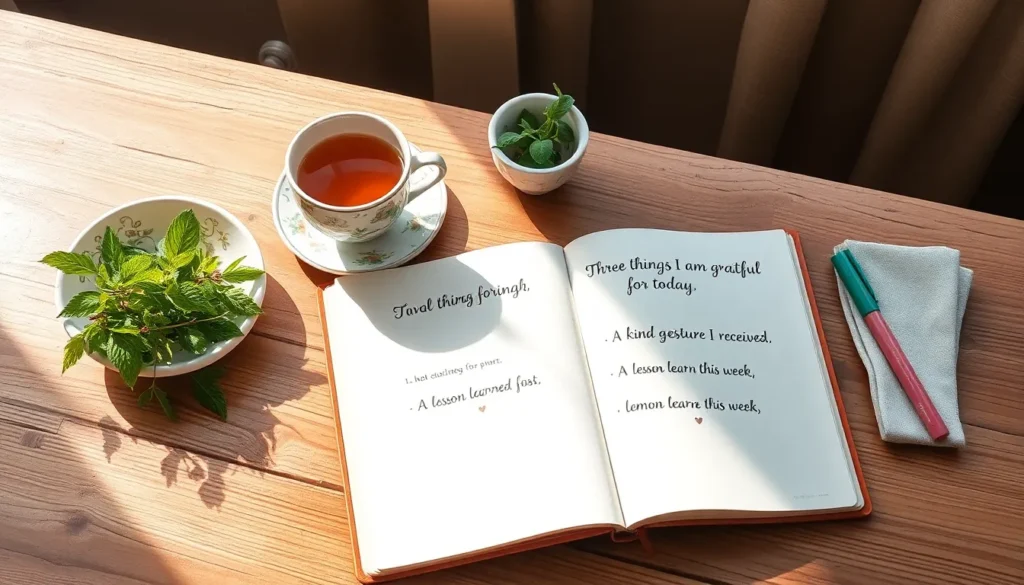 Taval thirg foringh,
1. hot
A lesson learned fost.
Three things I am gratful
for today.
. A kind gesture I received.
. A lesson learn this week,
. lemon learn this week,